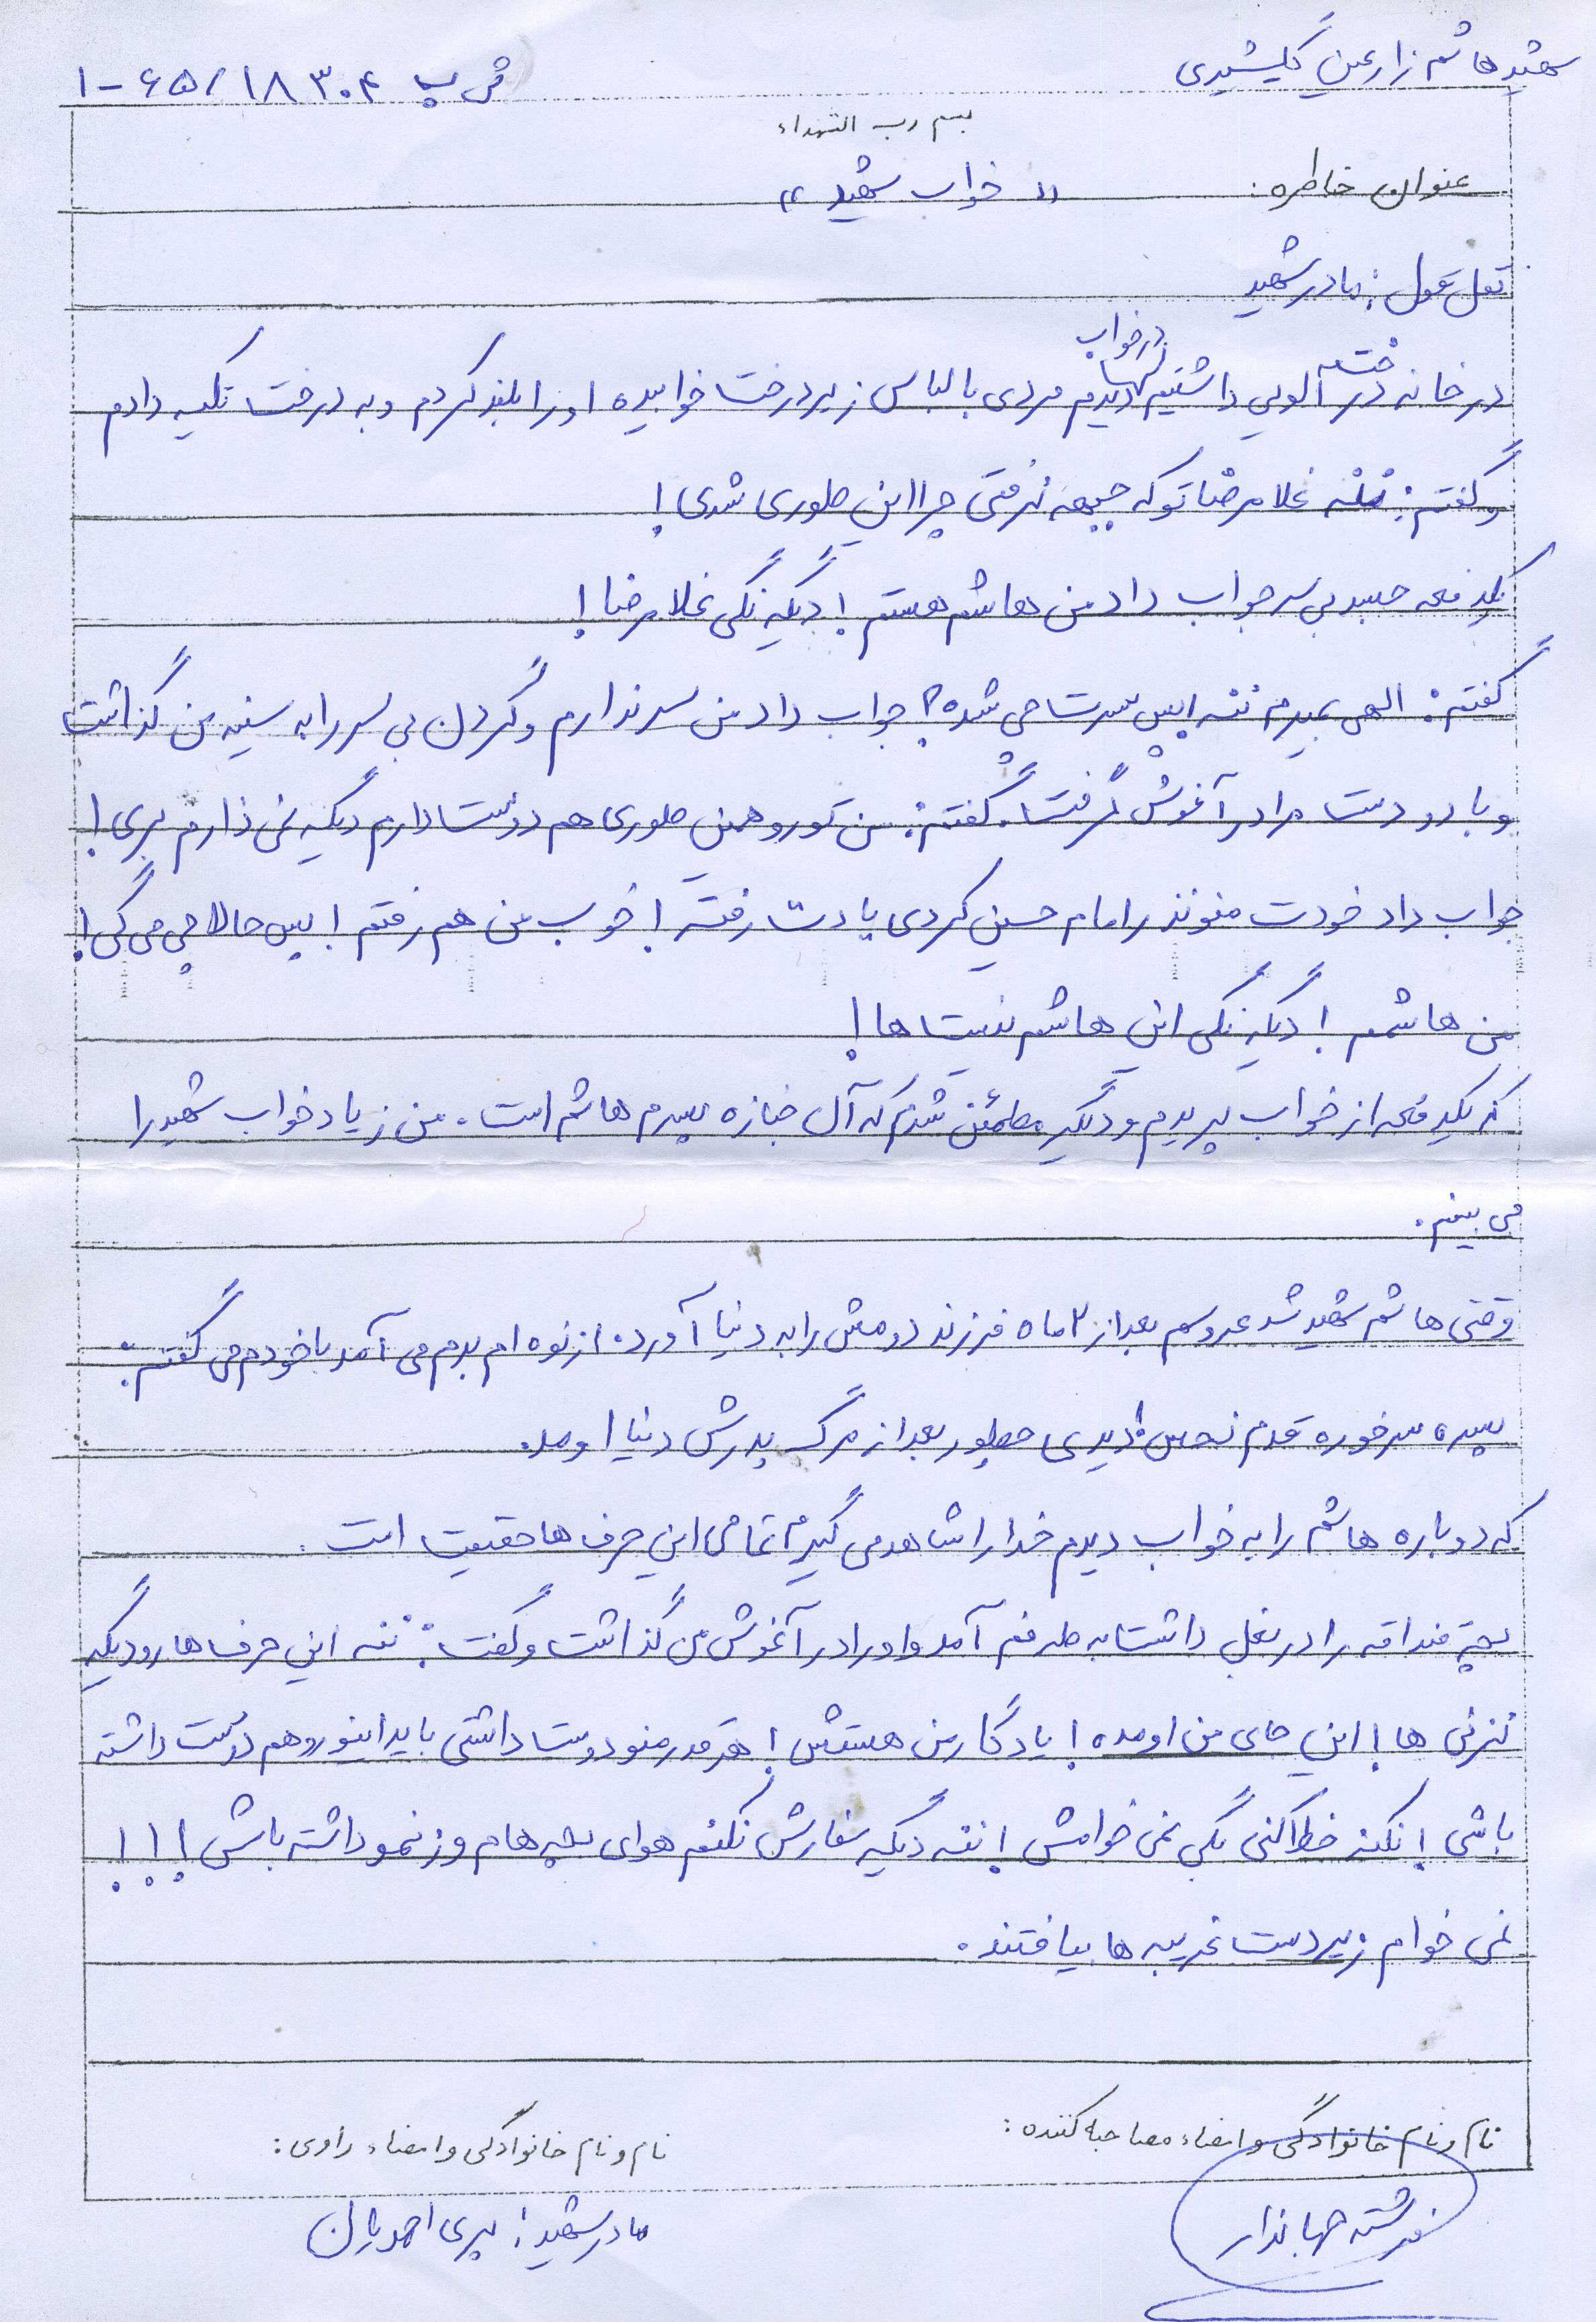 شهید هاشم زارعین گلیشیدی
ش پ ۶۵/۱۸۳۰۴-۱
بسم رب الشهداء
عنوان خاطره: «خواب شهید»
نقل قول: مادر شهید
در خانه درخت آلویی داشتیم در خواب دیدم مردی با لباس زیر درخت خوابیده او را بلند کردم و به درخت تکیه دادم
و گفتم: ننه غلامرضا تو که جبهه نرفتی چرا این طوری شدی!
یکدفعه جسد بی سر جواب داد من هاشم هستم! دیگه نگی غلامرضا!
گفتم: الهی بمیرم ننه پس سرت چی شده؟ جواب داد من سر ندارم و گردن بی سر را به سینه من گذاشت
و با دو دست مرا در آغوش گرفت. گفتم: من تو رو همین طوری هم دوست دارم دیگه نمی ذارم بری!
جواب داد خودت منو نذر امام حسین کردی یادت رفته! خوب من هم رفتم! پس حالا چی می گی!
من هاشمم! دیگه نگی این هاشم نیست ها!
که یکدفعه از خواب پریدم و دیگر مطمئن شدم که آن جنازه پسرم هاشم است. من زیاد خواب شهید را
می بینم.
وقتی هاشم شهید شد عروسم بعد از ۲ ماه فرزند دومش را به دنیا آورد. از نوه ام بدم می آمد با خودم می گفتم:
پسره سرخوره قدم نحس! دیدی چطور بعد از مرگ پدرش دنیا اومد.
که دوباره هاشم را به خواب دیدم خدا را شاهد می گیرم تمامی این حرف ها حقیقت است.
بچه قنداقه را در بغل داشت به طرفم آمد و او را در آغوش من گذاشت و گفت: ننه این حرف ها رو دیگه
نزنی ها! این جای من اومده! یادگار من هستش! هر قدر منو دوست داشتی باید اینو رو هم دوست داشته
باشی! نکنه خطا کنی بگی نمی خوامش! ننه دیگه سفارش نکنم هوای بچه هام و زنمو داشته باش!!!
نمی خوام زیر دست غریبه ها بیافتند.
نام و نام خانوادگی و امضاء مصاحبه کننده:
نام و نام خانوادگی و امضاء راوی:
فرشته جهاندار
مادر شهید: پری احمدیان